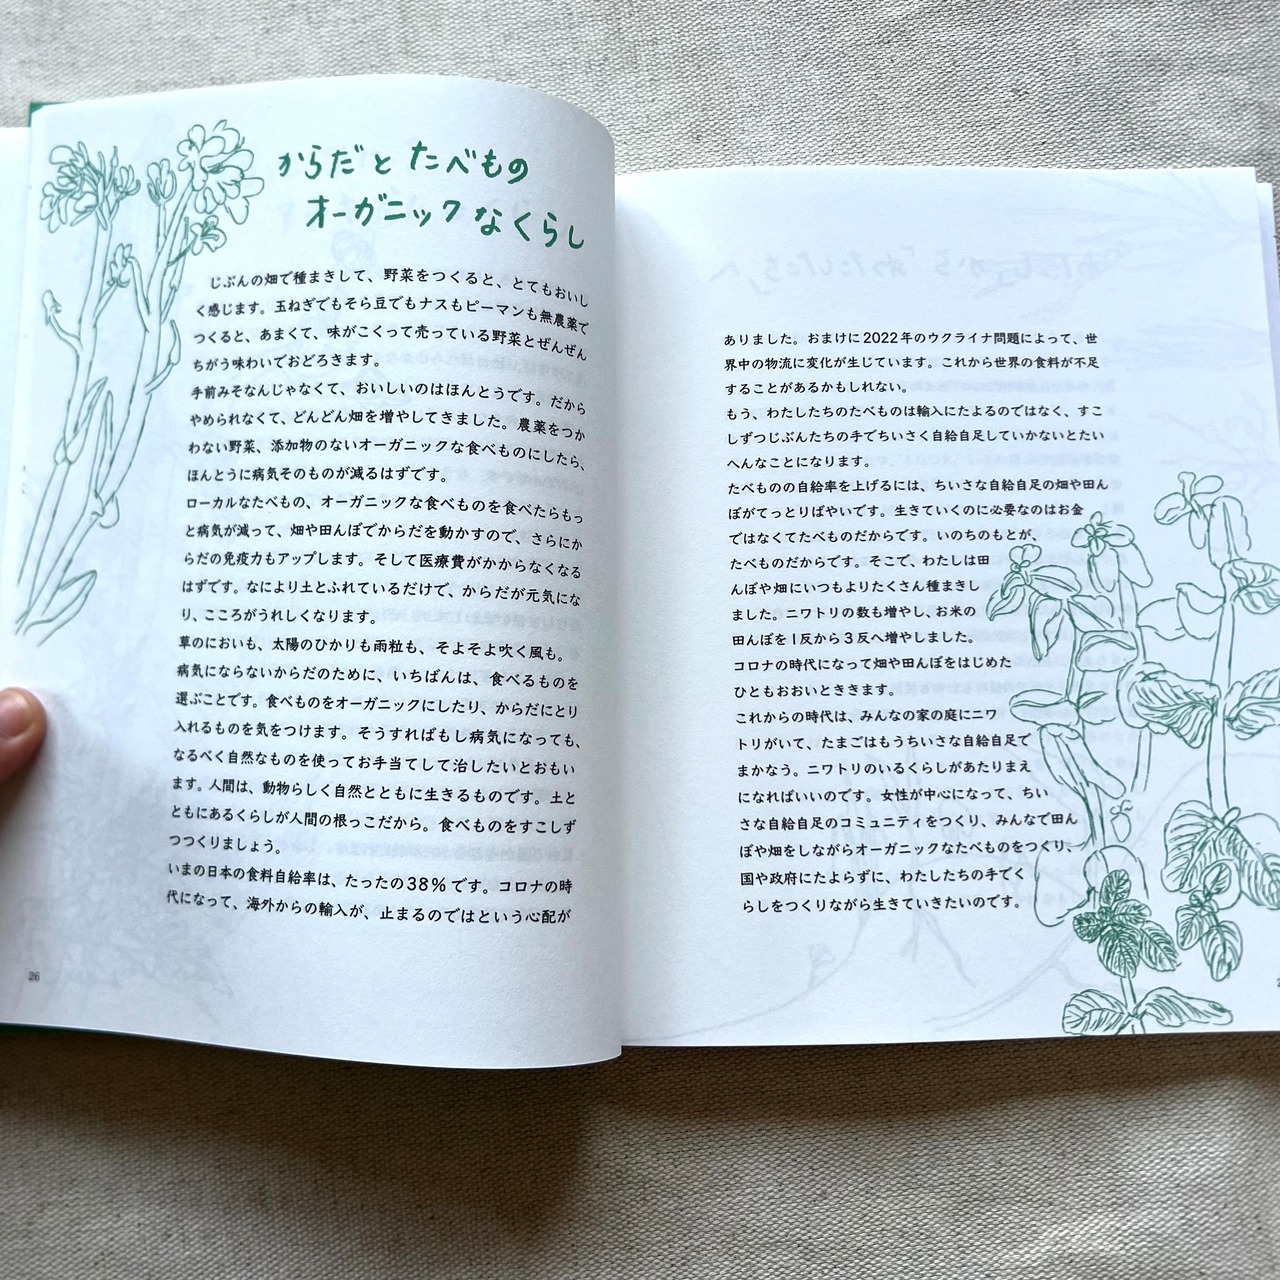 からだとたべもの
オーガニックなくらし
じぶんの畑で種まきして、野菜をつくると、とてもおいし
く感じます。玉ねぎでもそら豆でもナスもピーマンも無農薬で
つくると、あまくて、味がこくって売っている野菜とぜんぜん
ちがう味わいでおどろきます。
手前みそなんじゃなくて、おいしいのはほんとうです。だから
やめられなくて、どんどん畑を増やしてきました。農薬をつか
わない野菜、添加物のないオーガニックな食べものにしたら、
ほんとうに病気そのものが減るはずです。
ローカルなたべもの、オーガニックな食べものを食べたらもっ
と病気が減って、畑や田んぼでからだを動かすので、さらにか
らだの免疫力もアップします。そして医療費がかからなくなる
はずです。なにより土とふれているだけで、からだが元気にな
り、こころがうれしくなります。
草のにおいも、太陽のひかりも雨粒も、そよそよ吹く風も。
病気にならないからだのために、いちばんは、食べるものを
選ぶことです。食べものをオーガニックにしたり、からだにとり
入れるものを気をつけます。そうすればもし病気になっても、
なるべく自然なものを使ってお手当てして治したいとおもい
ます。人間は、動物らしく自然とともに生きるものです。土と
ともにあるくらしが人間の根っこだから。食べものをすこしず
つつくりましょう。
いまの日本の食料自給率は、たったの38%です。コロナの時
代になって、海外からの輸入が、止まるのではという心配が
26
ありました。おまけに2022年のウクライナ問題によって、世
界中の物流に変化が生じています。これから世界の食料が不足
することがあるかもしれない。
もう、わたしたちのたべものは輸入にたよるのではなく、すこ
しずつじぶんたちの手でちいさく自給自足していかないとたい
へんなことになります。
たべものの自給率を上げるには、ちいさな自給自足の畑や田ん
ぼがてっとりばやいです。生きていくのに必要なのはお金
ではなくてたべものだからです。いのちのもとが、
たべものだからです。そこで、わたしは田
んぼや畑にいつもよりたくさん種まきし
ました。ニワトリの数も増やし、お米の
田んぼを1反から3反へ増やしました。
コロナの時代になって畑や田んぼをはじめた
ひともおおいとききます。
これからの時代は、みんなの家の庭にニワ
トリがいて、たまごはもうちいさな自給自足で
まかなう。ニワトリのいるくらしがあたりまえ
になればいいのです。女性が中心になって、ちい
さな自給自足のコミュニティをつくり、みんなで田ん
ぼや畑をしながらオーガニックなたべものをつくり、
国や政府にたよらずに、わたしたちの手でく
らしをつくりながら生きていきたいのです。